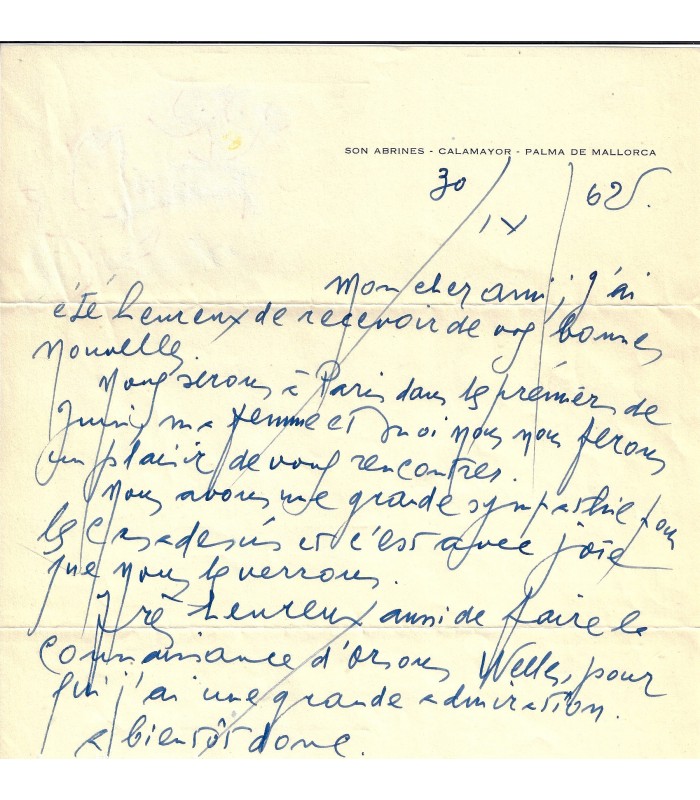 SON ABRINES - CALAMAYOR - PALMA DE MALLORCA
30 / IX / 625.
Mon cher ami, j'ai
été heureux de recevoir de vos bonnes
nouvelles.
Nous serons à Paris dans les prémiers de
Juin, ma femme et moi nous nous ferons
un plaisir de vous rencontrer.
Nous avons une grande sympathie pour
les Casadesús et c'est avec joie
que nous les verrons.
Très heureux aussi de faire la
connaissance d'Orsons Welles, pour
qui j'ai une grande admiration.
a bientôt donc.